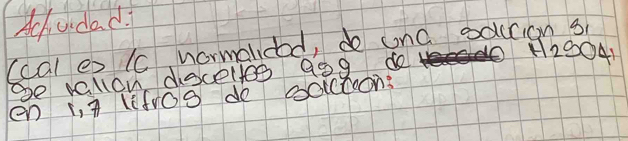 Actividad:
Cual es la normalidad, de una solucion si
se hallan disceltos 98g de H2SO4,
en 1,7 litros de solucion: